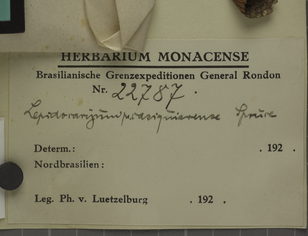 HERBARIUM MONACENSE
Brasilianische Grenzexpeditionen General Rondon
Nr. 22787.
Spruce
Determ.: . 192 .
Nordbrasilien:
Leg. Ph. v. Luetzelburg . 192 .